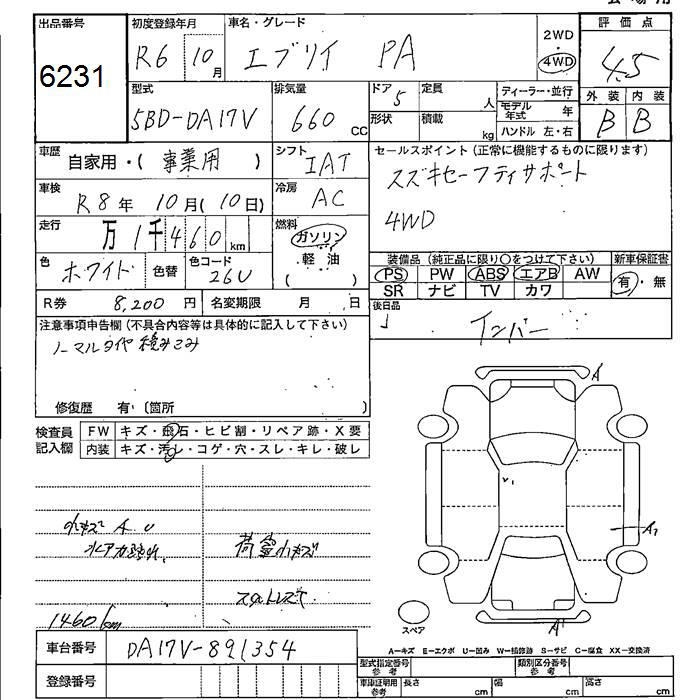 出品番号 初度登録年月 車名・グレード 評価点
6231 R6 10月 エブリイ PA 2WD 4WD 4.5
型式 排気量 ドア 定員 ディーラー・並行 外装 内装
5BD-DA17V 660 CC 5 人 モデル年式 年 B B
形状 積載 kg ハンドル 左・右
車歴 自家用・( 事業用 ) シフト IAT セールスポイント(正常に機能するものに限ります)
車検 R8年 10月(10日) 冷房 AC スズキセーフティサポート
走行 万1千460km 燃料 ガソリン 4WD
軽油
( )
色 ホワイト 色替 色コード 26U 装備品(純正品に限り○をつけて下さい) 新車保証書
PS PW ABS エアB AW 有・無
SR ナビ TV カワ
R券 8,200円 名変期限 月 日 後日品
注意事項申告欄(不具合内容等は具体的に記入して下さい) インバー
ノーマルタイヤ積みこみ
修復歴 有(箇所 )
検査員 FW キズ・飛石・ヒビ割・リペア跡・X要
記入欄 内装 キズ・汚レ・コゲ・穴・スレ・キレ・破レ
A
小キズ A.U
荷室小キズ
A1
スタットレス
1460km
スペア
A
車台番号 DA17V-891354
A-キズ E-エクボ U-凹み W-補修跡 S-サビ C-腐食 XX-交換済
型式指定番号 参考 類別区分番号 参考
登録番号 車庫証明用 参考 長さ cm 幅 cm 高さ cm